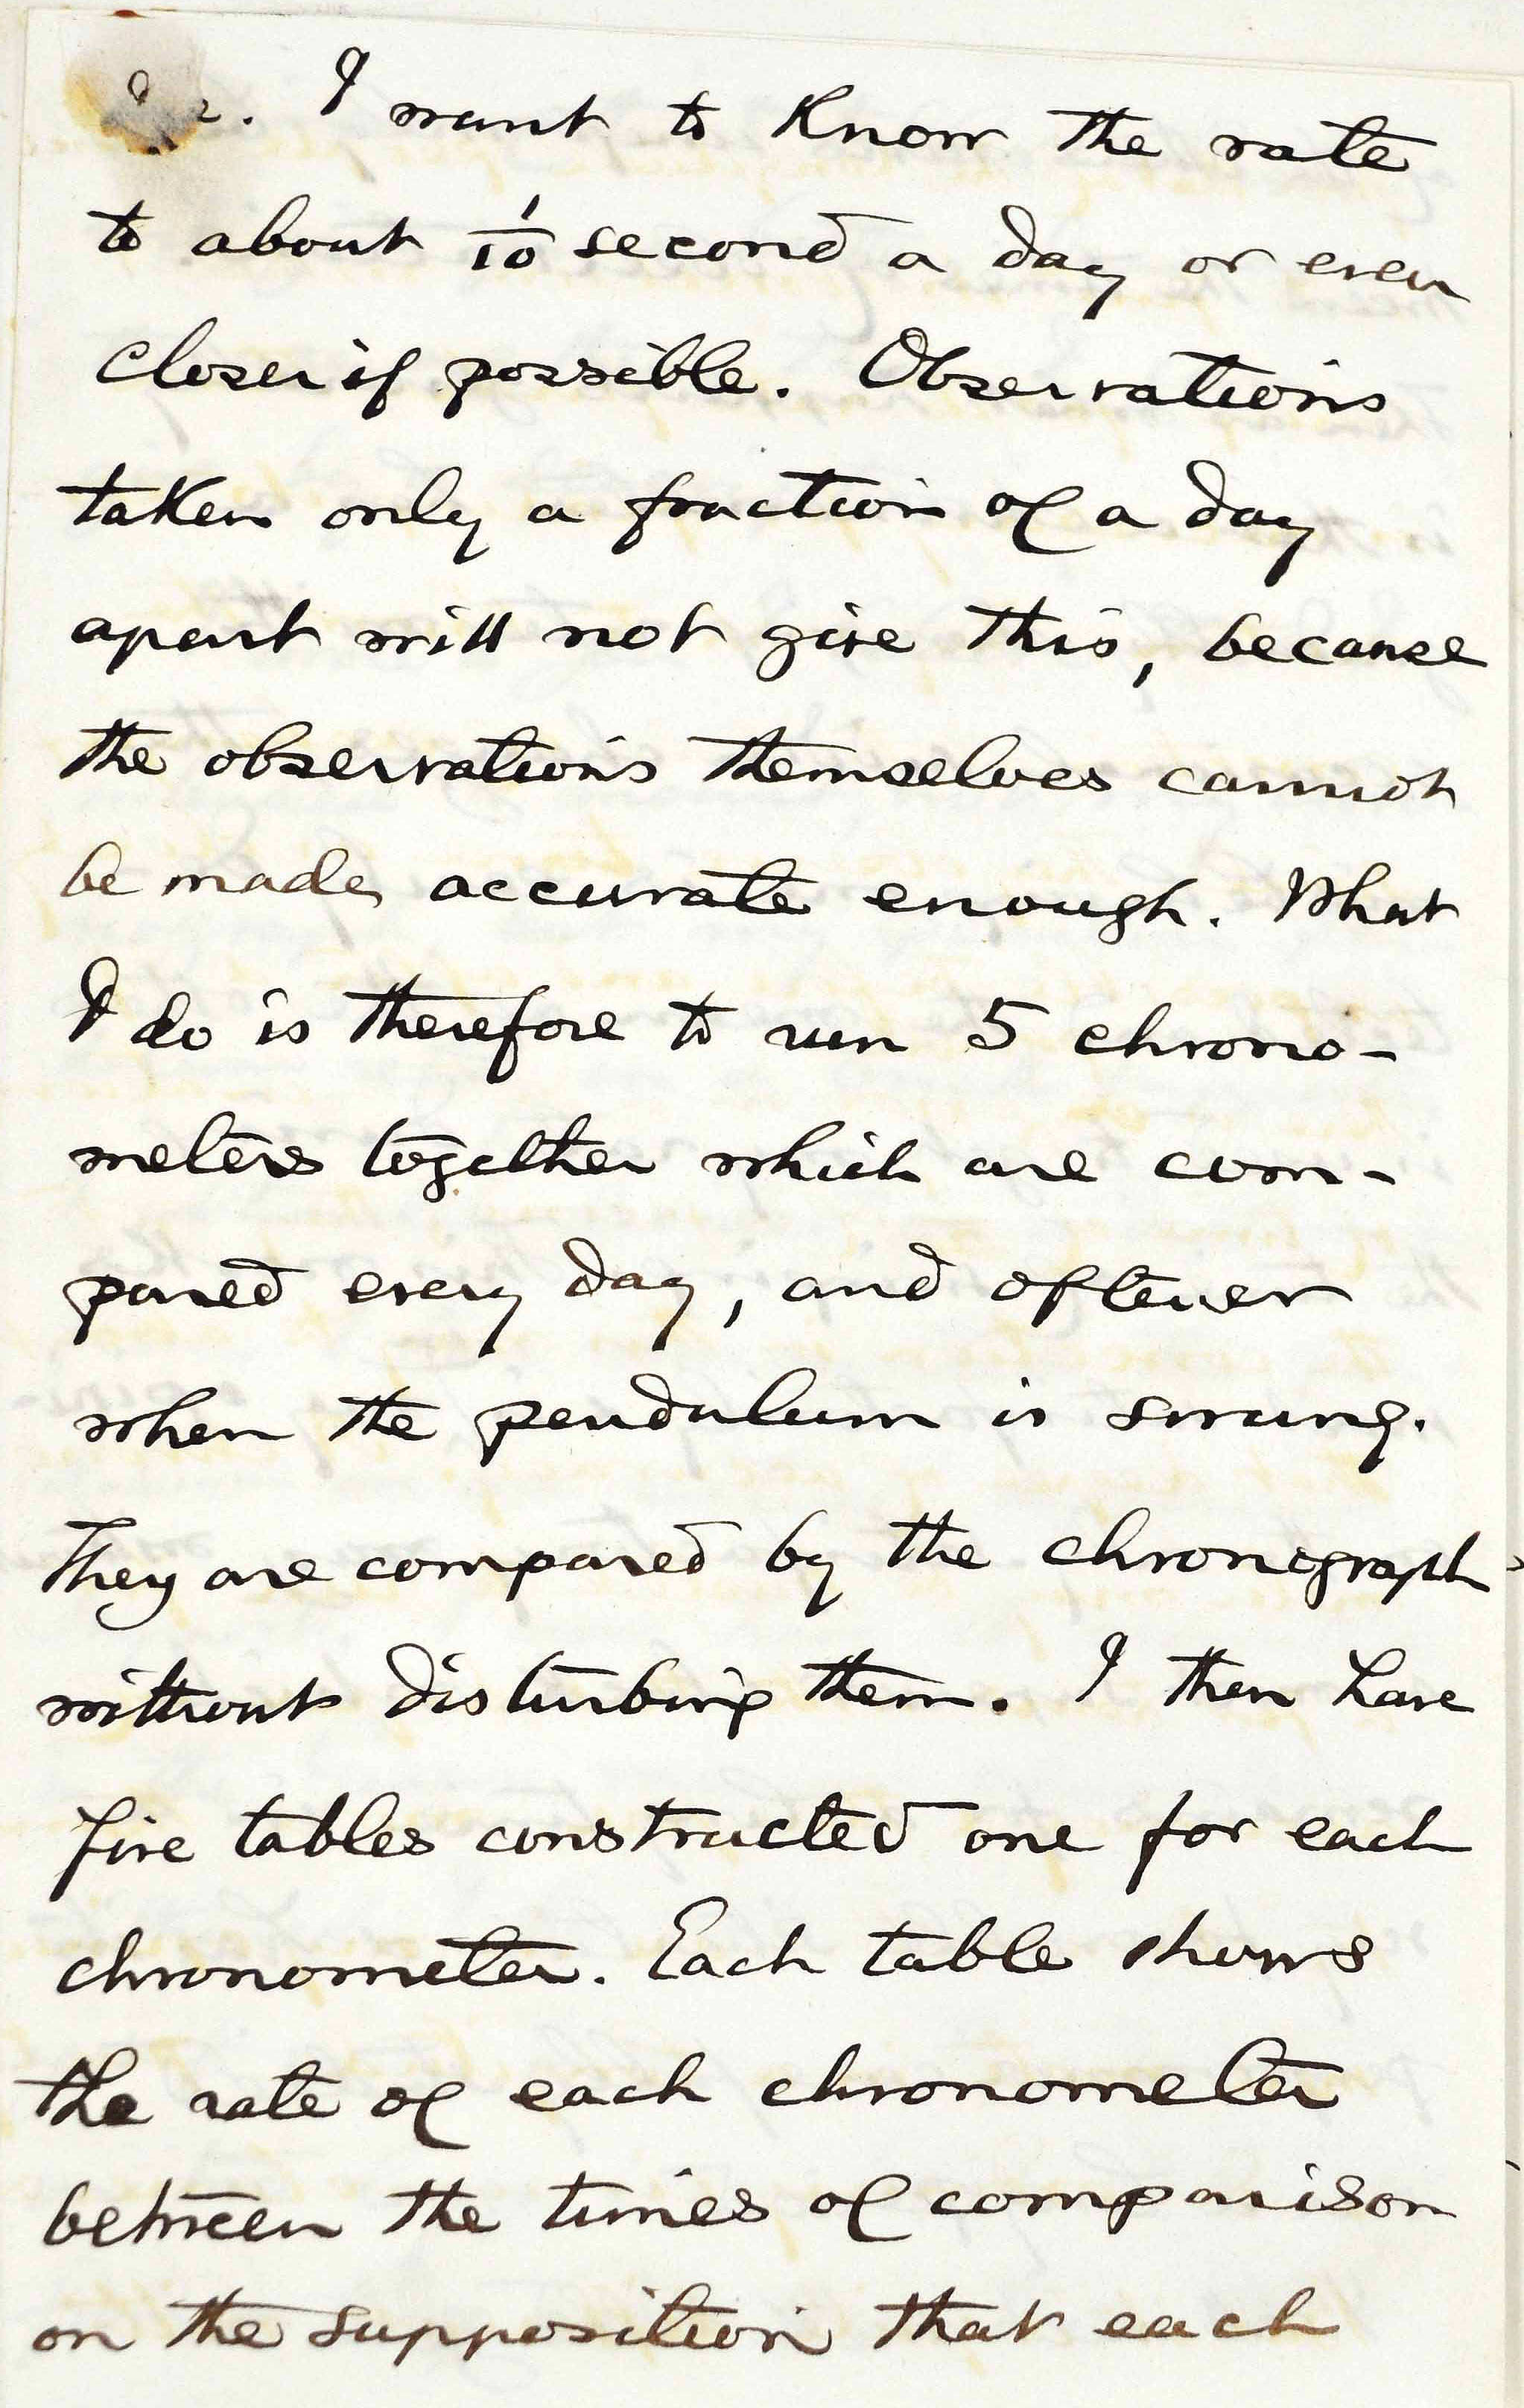 I want to Know the rate
to about 1/10 second a day or even
closer if possible. Observations
taken only a fraction of a day
apart will not give this, because
the observations themselves cannot
be made accurate enough. What
I do is therefore to run 5 chrono-
meters together which are com-
pared every day, and oftener
when the pendulum is swung.
They are compared by the chronograph
without disturbing them. I then have
five tables constructed one for each
chronometer. Each table shows
the rate of each chronometer
between the times of comparison
on the supposition that each